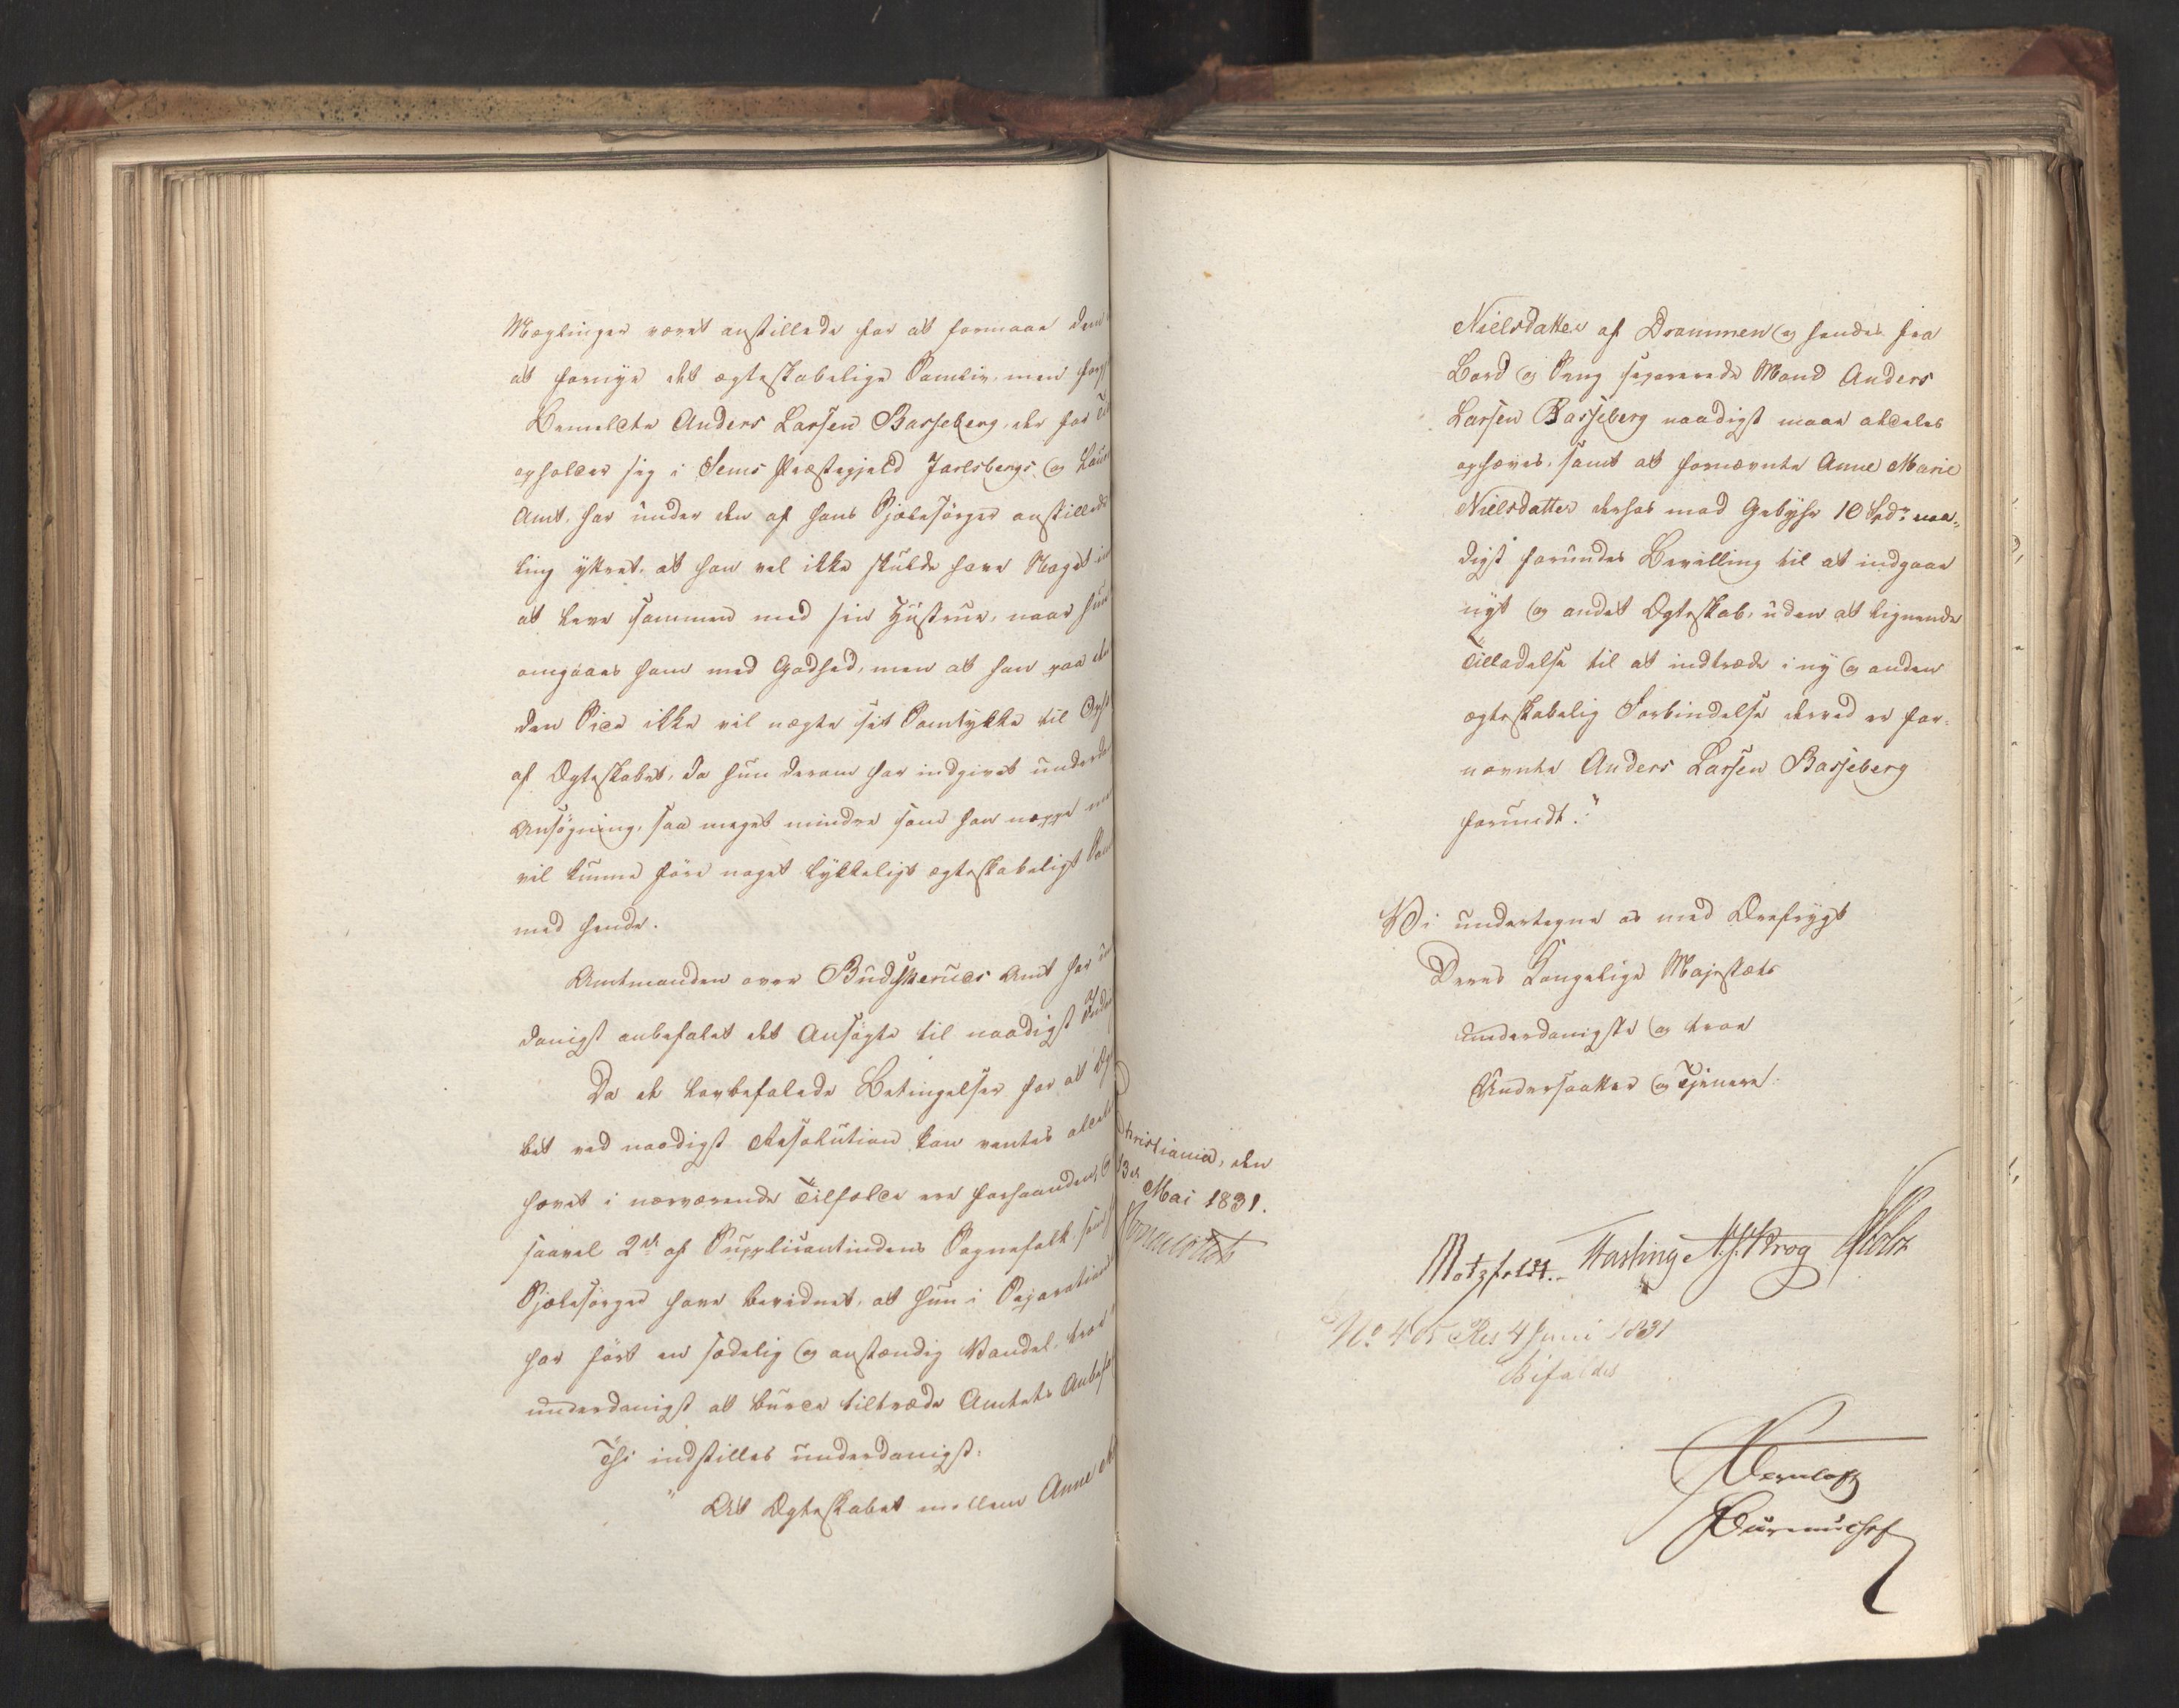 Mæglinger været anstillede for at formaae dem
at fornye det ægteskabelige Samliv, men
Bemeldte Anders Larsen Basseberg, der for
opholder sig i Sems Præstegjeld Jarlsbergs og
Amt, har under den af hans Sjælesørger anstillede
ling yttret, at han vel ikke skulde have Noget
at leve sammen med sin Hustrue, naar hun
omgaaes ham med Godhed, men at han paa den
den Side ikke vil nægte sit Samtykke til
af Ægteskabet, da hun derom har indgivet
Ansøgning, saa meget mindre som han neppe
vil kunne føre noget lykkeligt ægteskabeligt
med hende.
Amtmanden over Budskeruds Amt har
danigst anbefalet det Ansøgte til naadigst
Da de lovbefalede Betingelser for at
bet ved naadigst Resolution kan ventes
hævet i nærværende Tilfælde ere forhaanden,
saavel 2de af Supplicantindens Sognefolk som
Sjælesørger have bevidnet, at hun i
har ført en sædelig og anstændig Vandel, troer
underdanigst at burde tiltræde Amtets
Thi indstilles underdanigst:
" At Ægteskabet mellem Anne
Nielsdatter af Drammen og hendes fra
Bord og Seng separerede Mand Anders
Larsen Basseberg naadigst maae aldeles
ophæves, samt at fornævnte Anne Marie
Nielsdatter derhos mod Gebyhr 10 Spdr. naa-
digst forundes Bevilling til at indgaae
nyt og andet Ægteskab, uden at lignende
Tilladelse til at indtræde i ny og anden
ægteskabelig Forbindelse derved er for-
nævnte Anders Larsen Basseberg
forundt."
Vi undertegne os med Ærefrygt
Deres Kongelige Majestæts
underdanigste og troe
Undersaatter og Tjenere.
Christiania, den
13de Mai 1831.
Motzfeldt. Fasting N.J. Krog Holst
No. 405 Res 4 Juni 1831
Bifaldes